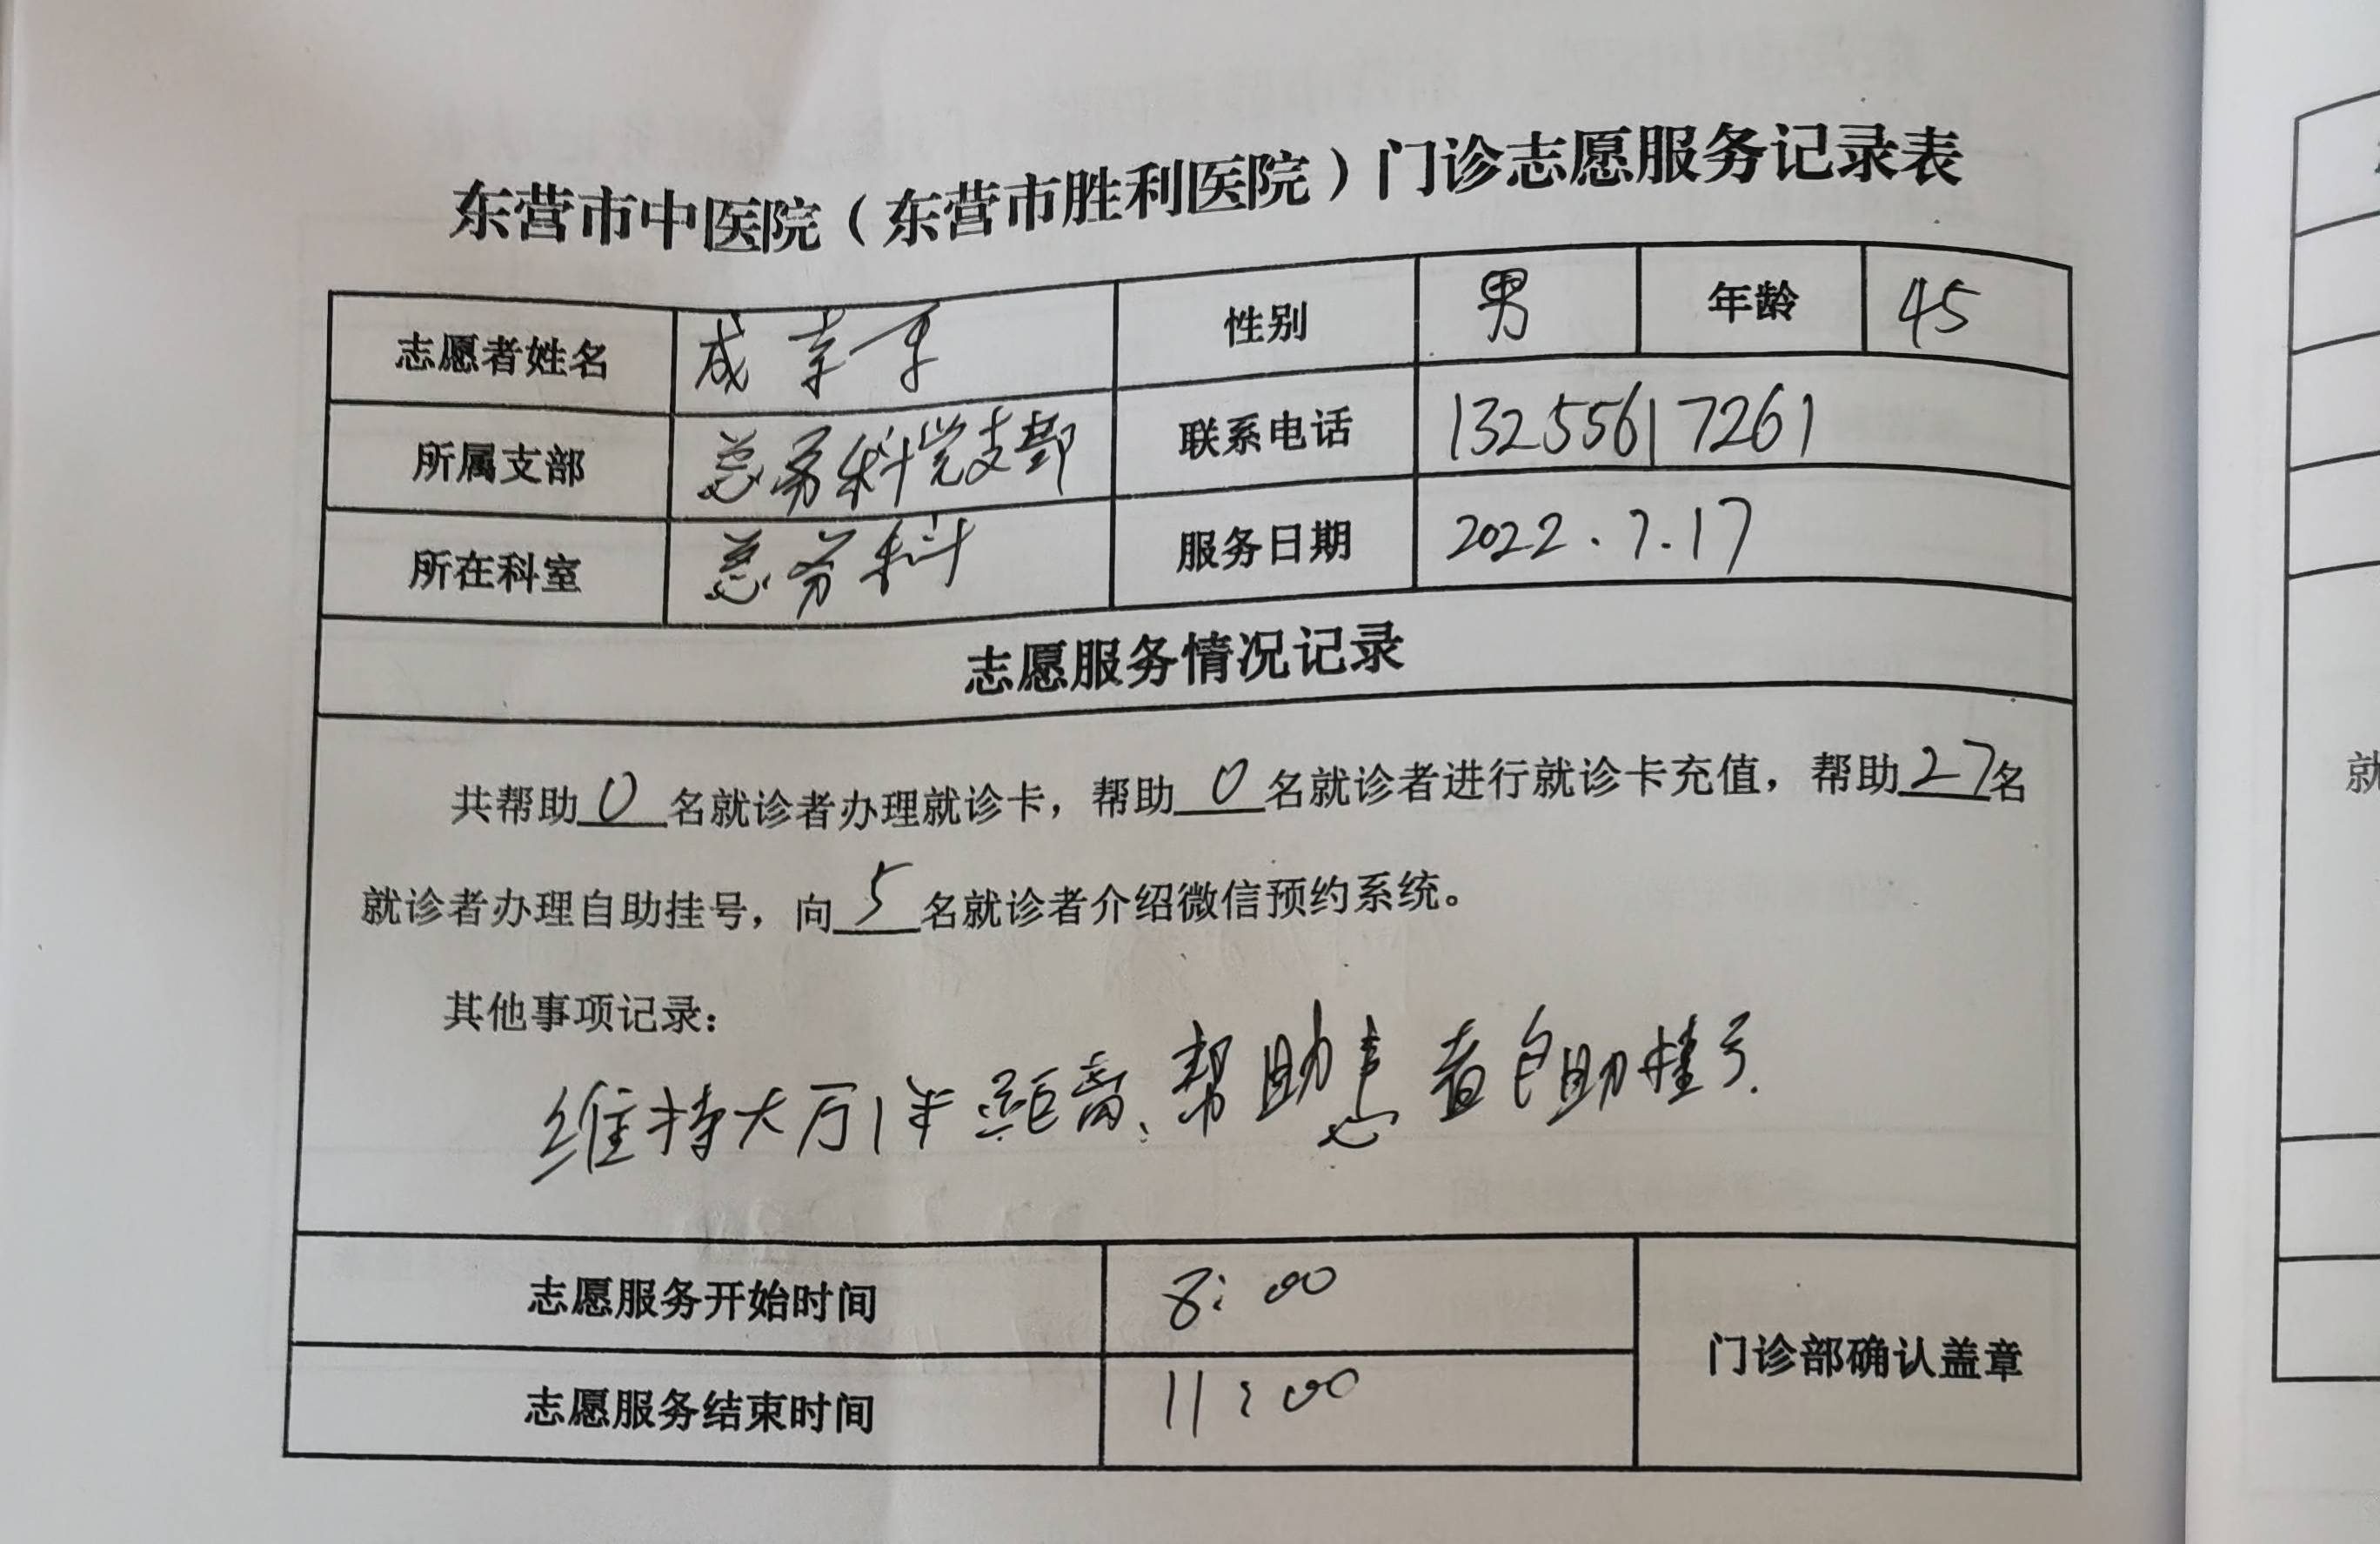 东营市中医院（东营市胜利医院）门诊志愿服务记录表
志愿者姓名 成 性别 男 年龄 45
所属支部 总务科党支部 联系电话 13255617261
所在科室 总务科 服务日期 2022.7.17
志愿服务情况记录
共帮助0名就诊者办理就诊卡，帮助0名就诊者进行就诊卡充值，帮助27名
就诊者办理自助挂号，向5名就诊者介绍微信预约系统。
其他事项记录：
维持大厅1米距离、帮助患者自助挂号.
志愿服务开始时间 8:00
门诊部确认盖章
志愿服务结束时间 11:00
就